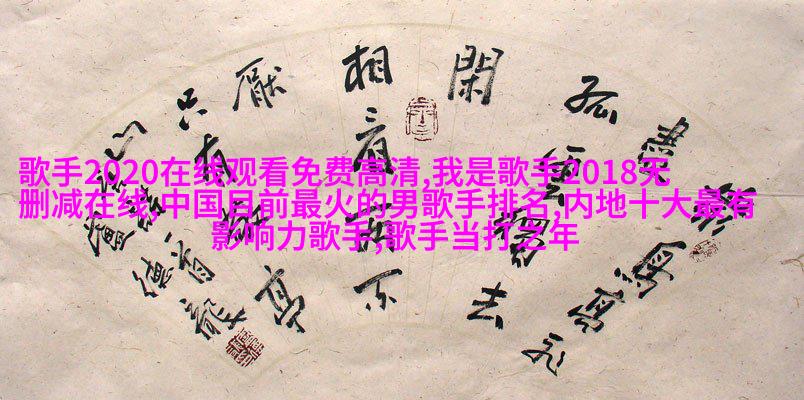 歌手2020在线观看免费高清,我是歌手2018无
删减在线,中国目前最火的男歌手排名,内地十大最有
影响力歌手,歌手当打之年
鳥高飛
孤雲獨去
閑
相看兩不
厭
只有敬亭
山